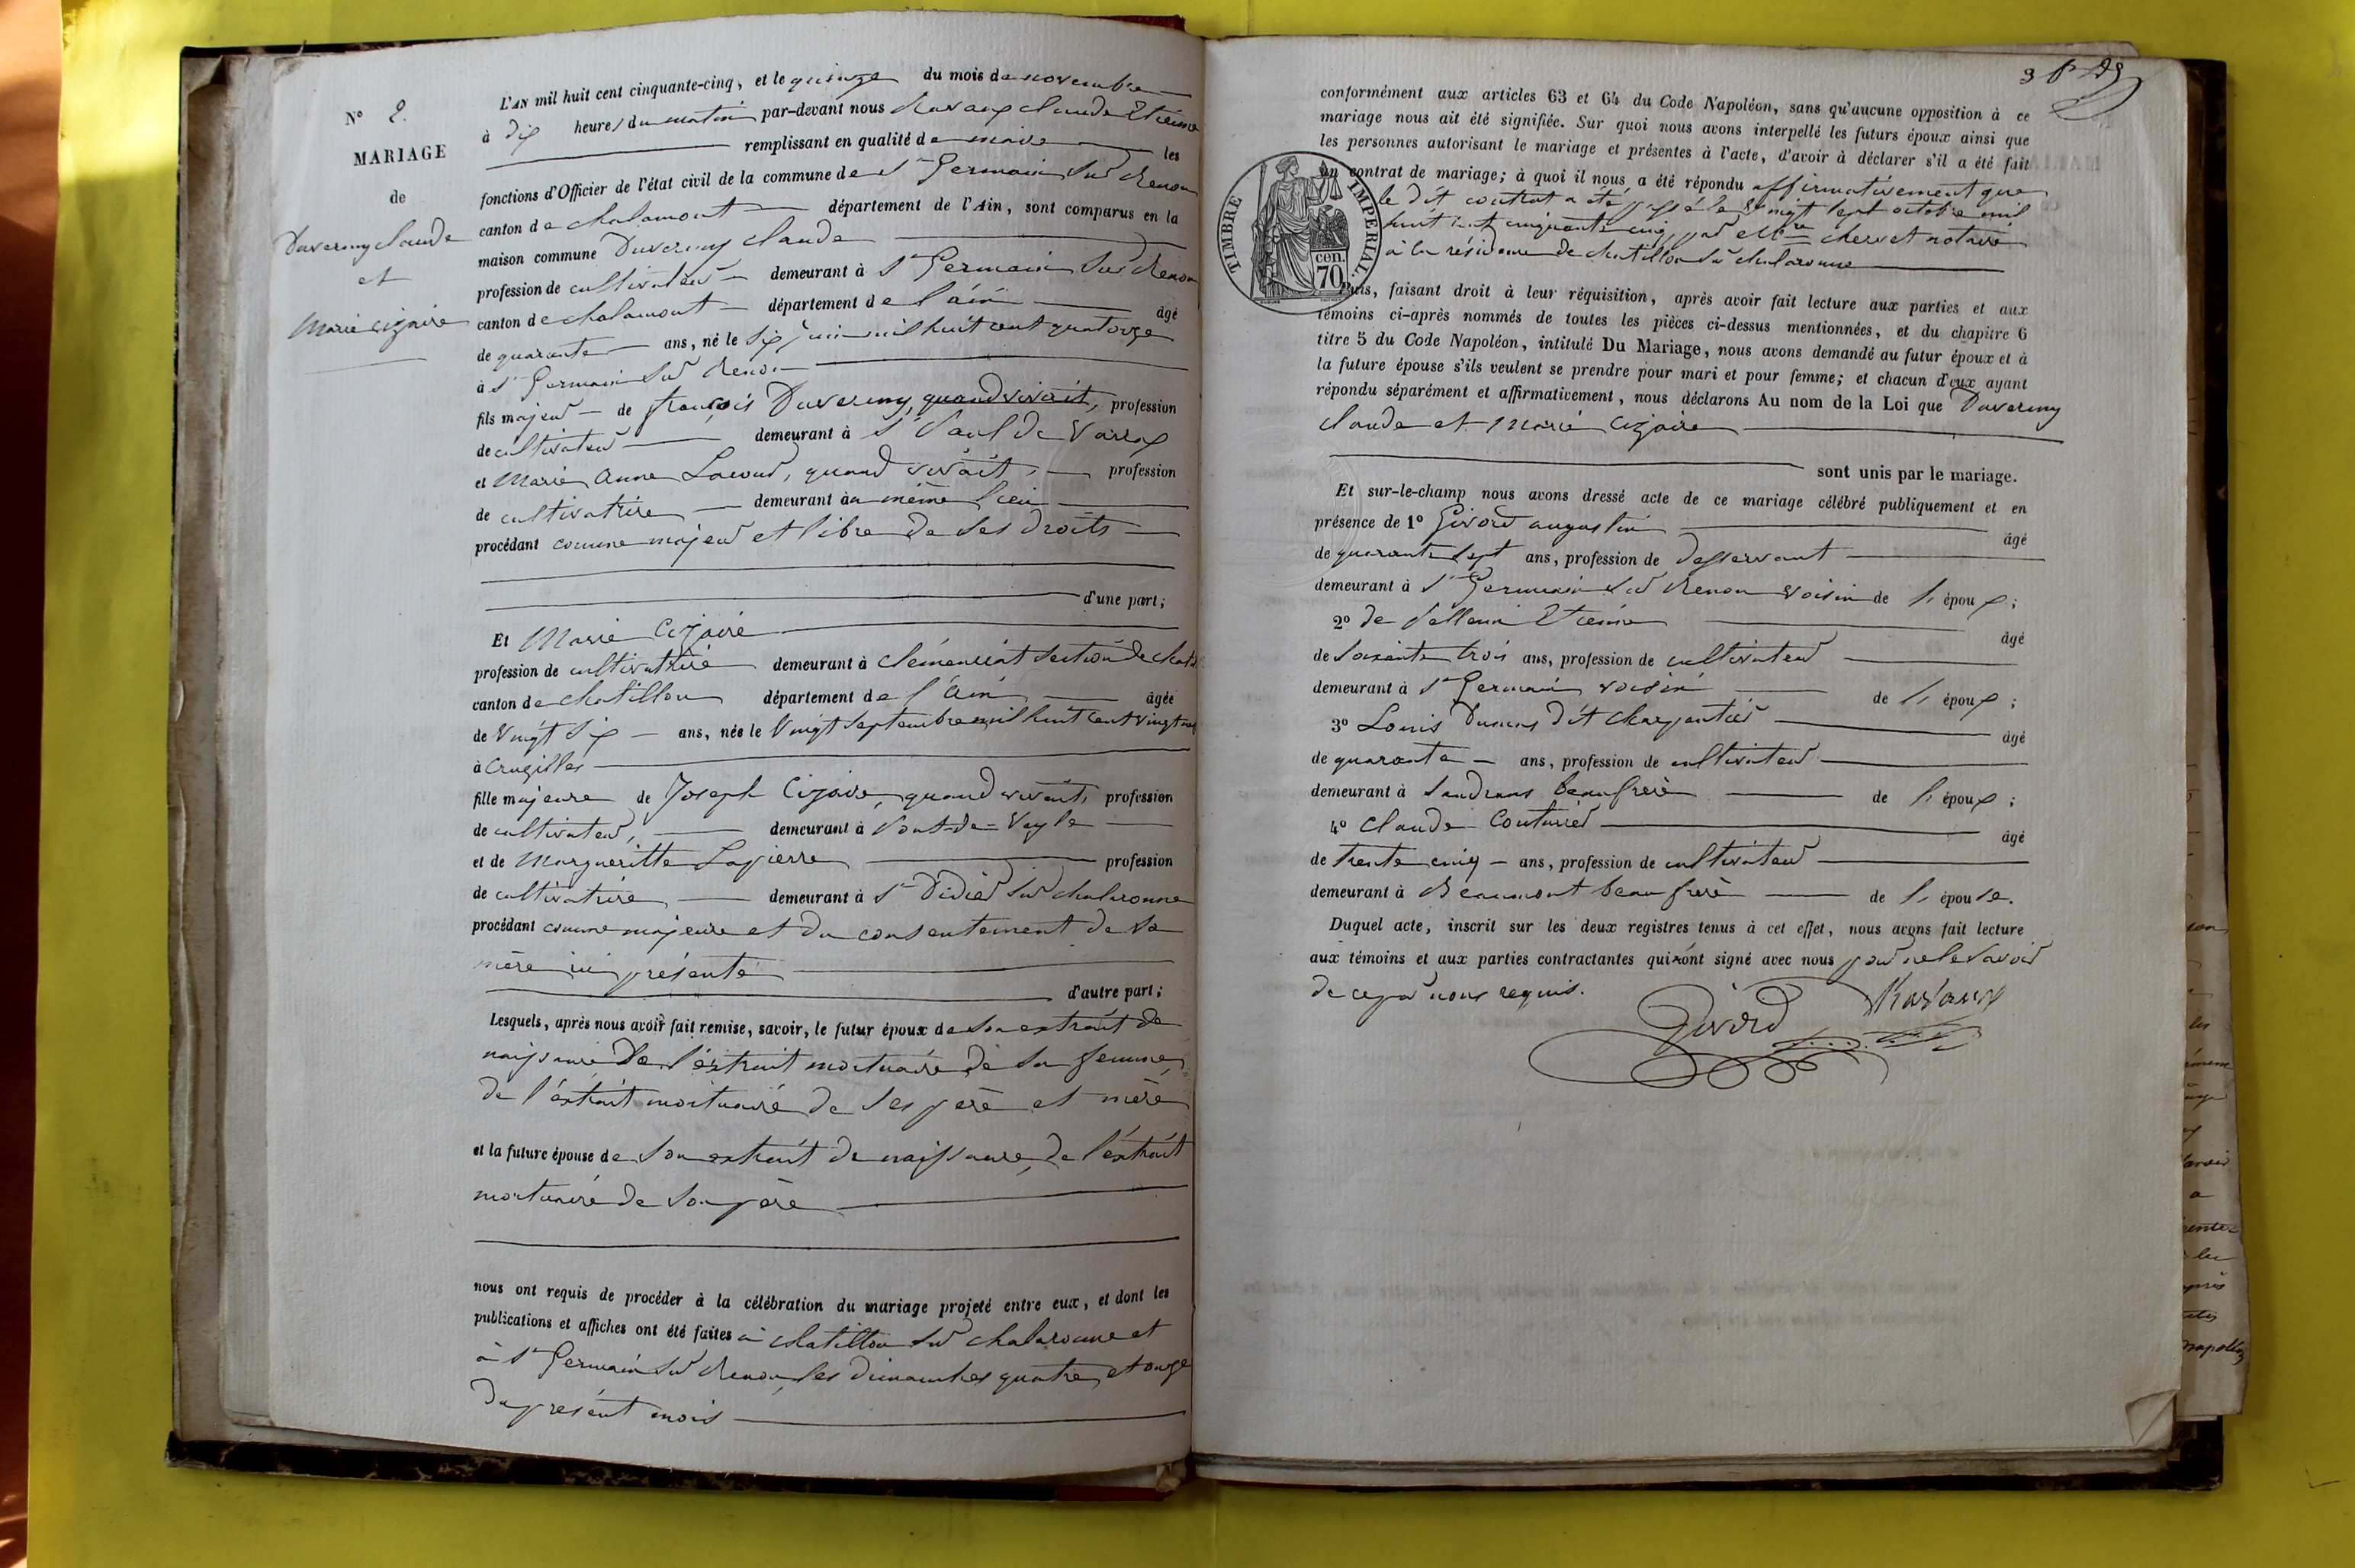 N° 2.
MARIAGE
de
Duverny claude
et
Marie cizaire
L'AN mil huit cent cinquante-cinq, et le quinze du mois de novembre
à dix heures du matin par-devant nous claude Etienne
remplissant en qualité de maire les
fonctions d'Officier de l'état civil de la commune de St Germain sur Renon
canton de chalamont département de l'Ain, sont comparus en la
maison commune Duverny claude
profession de cultivateur demeurant à St Germain sur Renon
canton de chalamont département de l'ain âgé
de quarante ans, né le six juin mil huit cent quatorze
à St Germain sur Renon
fils majeur de françois Duverny, quand vivait, profession
de cultivateur demeurant à St Paul de Varax
et Marie Anne Lacour, quand vivait, profession
de cultivatrice demeurant au même lieu
procédant comme majeur et libre de ses droits
d'une part;
Et Marie Cizaire
profession de cultivatrice demeurant à clémenciat section de chat
canton de chatillon département de l'Ain âgée
de vingt six ans, née le vingt septembre mil huit cent vingt neuf
à Cruzilles
fille majeure de Joseph Cizaire, quand vivait, profession
de cultivateur, demeurant à Pont-de-Veyle
et de Margueritte Lapierre profession
de cultivatrice demeurant à St Didier sur chalaronne
procédant comme majeure et du consentement de sa
mère ici présente
d'autre part;
Lesquels, après nous avoir fait remise, savoir, le futur époux de son extrait de
naissance De l'éxtrait mortuaire de sa femme,
de l'éxtrait mortuaire de ses père et mère
et la future épouse de son extrait de naissance, de l'éxtrait
mortuaire de son père
nous ont requis de procéder à la célébration du mariage projeté entre eux, et dont les
publications et affiches ont été faites à chatillon sur chalaronne et
à St Germain sur Renon, les dimanches quatre et onze
du présent mois
conformément aux articles 63 et 64 du Code Napoléon, sans qu'aucune opposition à ce
mariage nous ait été signifiée. Sur quoi nous avons interpellé les futurs époux ainsi que
les personnes autorisant le mariage et présentes à l'acte, d'avoir à déclarer s'il a été fait
un contrat de mariage; à quoi il nous a été répondu affirmativement que
le dit contrat a été passé le vingt sept octobre mil
huit cent cinquante cinq, par Mtre chervet notaire
à la résidence de chatillon sur chalaronne
TIMBRE IMPERIAL.
cen.
70
Puis, faisant droit à leur réquisition, après avoir fait lecture aux parties et aux
témoins ci-après nommés de toutes les pièces ci-dessus mentionnées, et du chapitre 6
titre 5 du Code Napoléon, intitulé Du Mariage, nous avons demandé au futur époux et à
la future épouse s'ils veulent se prendre pour mari et pour femme; et chacun d'eux ayant
répondu séparément et affirmativement, nous déclarons Au nom de la Loi que Duverny
claude et Marie Cizaire
sont unis par le mariage.
Et sur-le-champ nous avons dressé acte de ce mariage célébré publiquement et en
présence de 1° Givord augustin âgé
de quarante sept ans, profession de desservant
demeurant à St Germain sur Renon voisin de l'époux;
2° de Etienne âgé
de soixante trois ans, profession de cultivateur
demeurant à St Germain voisin de l'époux;
3° Louis Dumas dit charpentier âgé
de quarante ans, profession de cultivateur
demeurant à Sandrans beau frère de l'époux;
4° claude Couturier âgé
de trente cinq ans, profession de cultivateur
demeurant à Beaumont beau frère de l'épouse.
Duquel acte, inscrit sur les deux registres tenus à cet effet, nous avons fait lecture
aux témoins et aux parties contractantes qui n'ont signé avec nous pour ne le savoir
de ce par nous requis.
Givord